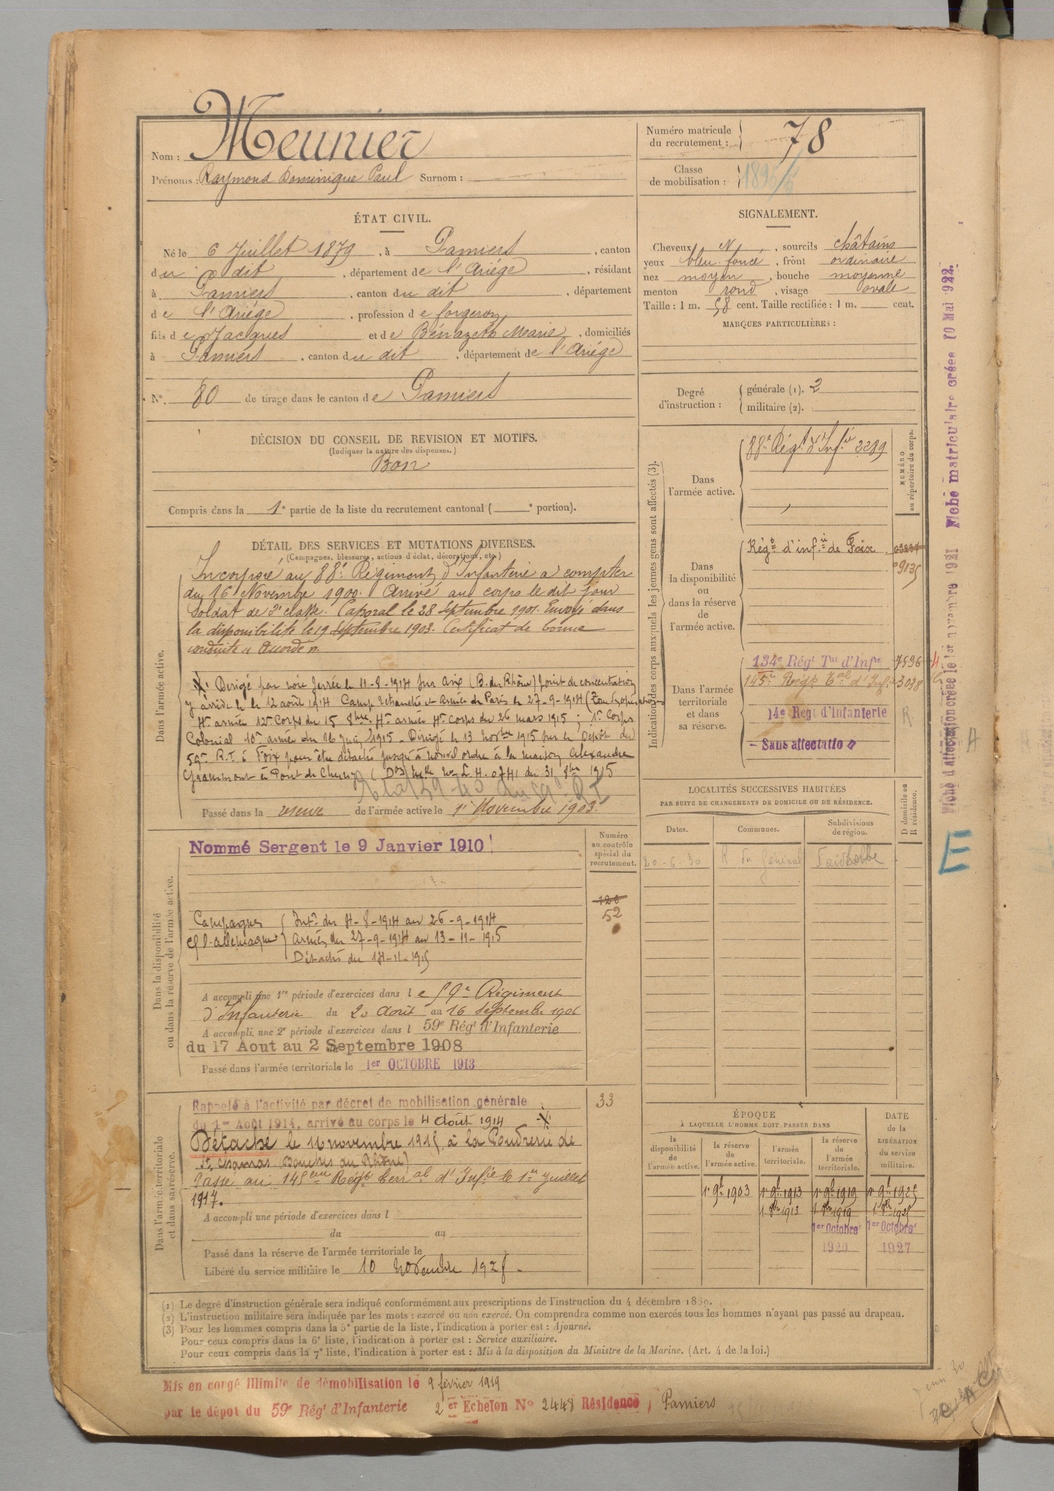 Nom : Meunier
Prénoms : Raymond Dominique Paul Surnom :
Numéro matricule du recrutement : 78
Classe de mobilisation :
ÉTAT CIVIL.
Né le 6 Juillet 1879, à Pamiers, canton
du dit, département de l'Ariège, résidant
à Pamiers, canton du dit, département
de l'Ariège, profession de forgeron
fils de Jacques et de Bénazeth Marie, domiciliés
à Pamiers, canton du dit, département de l'Ariège
N° 80 de tirage dans le canton de Pamiers
SIGNALEMENT.
Cheveux N, sourcils châtains
yeux bleu foncé, front ordinaire
nez moyen, bouche moyenne
menton rond, visage ovale
Taille : 1 m. 58 cent. Taille rectifiée : 1 m. cent.
MARQUES PARTICULIÈRES :
Degré d'instruction : générale (1). 2
militaire (2).
DÉCISION DU CONSEIL DE REVISION ET MOTIFS.
(Indiquer la nature des dispenses.)
Bon
Compris dans la 1e partie de la liste du recrutement cantonal ( e portion).
DÉTAIL DES SERVICES ET MUTATIONS DIVERSES.
(Campagnes, blessures, actions d'éclat, décorations, etc.)
Dans l'armée active.
Incorporé au 88e Régiment d'Infanterie à compter
du 16 Novembre 1900. Arrivé au corps le dit jour
soldat de 2e classe. Caporal le 28 septembre 1901. Envoyé dans
la disponibilité le 19 septembre 1903. Certificat de bonne
conduite accordé.
Dirigé par voie ferrée le 11-8-1914 sur Aix (B. du Rhône) point de concentration
y arrivé le 12 août 1914 Camp retranché et Armée de Paris le 27-9-1914
4e armée 12e Corps du 15 8bre 4e armée 4e Corps du 26 mars 1915 ; 1er Corps
Colonial 10e armée du 16 juin 1915 - Dirigé le 13 novbre 1915 par le Dépôt du
59e R.T. à Foix pour être détaché jusqu'à nouvel ordre à la maison Alexandre
Grammont à Pont de Cheruy
Passé dans la réserve de l'armée active le 1er Novembre 1903.
Dans la disponibilité ou dans la réserve de l'armée active.
Nommé Sergent le 9 Janvier 1910
Campagnes Intr du 4-8-1914 au 26-9-1914
c/ l'allemagne Armées du 27-9-1914 au 13-11-1915
Détaché du 14-11-1915
A accompli une 1re période d'exercices dans le 59e Régiment
d'Infanterie du 20 Août au 16 Septembre 1906
A accompli une 2e période d'exercices dans l 59e Régt d'Infanterie
du 17 Aout au 2 Septembre 1908
Passé dans l'armée territoriale le 1er OCTOBRE 1913
Numéro au contrôle spécial du recrutement.
120
52
33
Dans l'armée territoriale et dans sa réserve.
Rappelé à l'activité par décret de mobilisation générale
du 1er Août 1914, arrivé au corps le 4 août 1914
Détaché le 16 novembre 1915 à la Poudrerie de
St Chamas (Bouches du Rhône)
Passé au 145ème Régt Terral d'Infie le 1er juillet
1917.
A accompli une période d'exercices dans l
du au
Passé dans la réserve de l'armée territoriale le
Libéré du service militaire le 10 novembre 1928.
Indication des corps auxquels les jeunes gens sont affectés (3).
NUMÉRO au répertoire du corps.
Dans l'armée active.
88e Régt d'Infie 3289
Dans la disponibilité ou dans la réserve de l'armée active.
Régt d'infie de Foix
Dans l'armée territoriale et dans sa réserve.
134e Régt Tal d'Infie 7596
145e Régt Tal d'Inf. 3038
14e Régt d'Infanterie R
- Sans affectation
LOCALITÉS SUCCESSIVES HABITÉES
PAR SUITE DE CHANGEMENTS DE DOMICILE OU DE RÉSIDENCE.
Dates. Communes. Subdivisions de région. D domicile ou R résidence.
20-6-30 R du Général Faidherbe
ÉPOQUE
À LAQUELLE L'HOMME DOIT PASSER DANS
DATE DE LA LIBÉRATION du service militaire.
la disponibilité de l'armée active. la réserve de l'armée active. l'armée territoriale. la réserve de l'armée territoriale.
1r 9bre 1903 1r 9bre 1913 1r 9bre 1919 1r 9bre 1925
1er Octobre 1er Octobre
1920 1927
(1) Le degré d'instruction générale sera indiqué conformément aux prescriptions de l'instruction du 4 décembre 1889.
(2) L'instruction militaire sera indiquée par les mots : exercé ou non exercé. On comprendra comme non exercés tous les hommes n'ayant pas passé au drapeau.
(3) Pour les hommes compris dans la 5e partie de la liste, l'indication à porter est : Ajourné.
Pour ceux compris dans la 6e liste, l'indication à porter est : Service auxiliaire.
Pour ceux compris dans la 7e liste, l'indication à porter est : Mis à la disposition du Ministre de la Marine. (Art. 4 de la loi.)
Mis en congé illimité de démobilisation le 9 février 1919
par le dépôt du 59e Régt d'Infanterie 2er Echelon No 2448 Résidence, Pamiers
Fiche d'affectation créée le 1er novembre 1921 Fiche matriculaire créée 10 Mai 922.
E